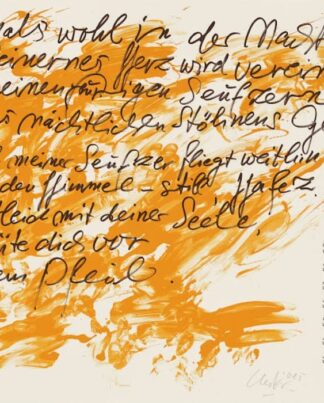 als wohl in der Nacht
einernes Herz wird verein
einen feurigen Seufzern
nächtlichen Stöhnens.
meiner Seufzer fliegt weithin
den Himmel – still, Hafez.
leid mit deiner Seele,
te dich vor
em Pfeil.